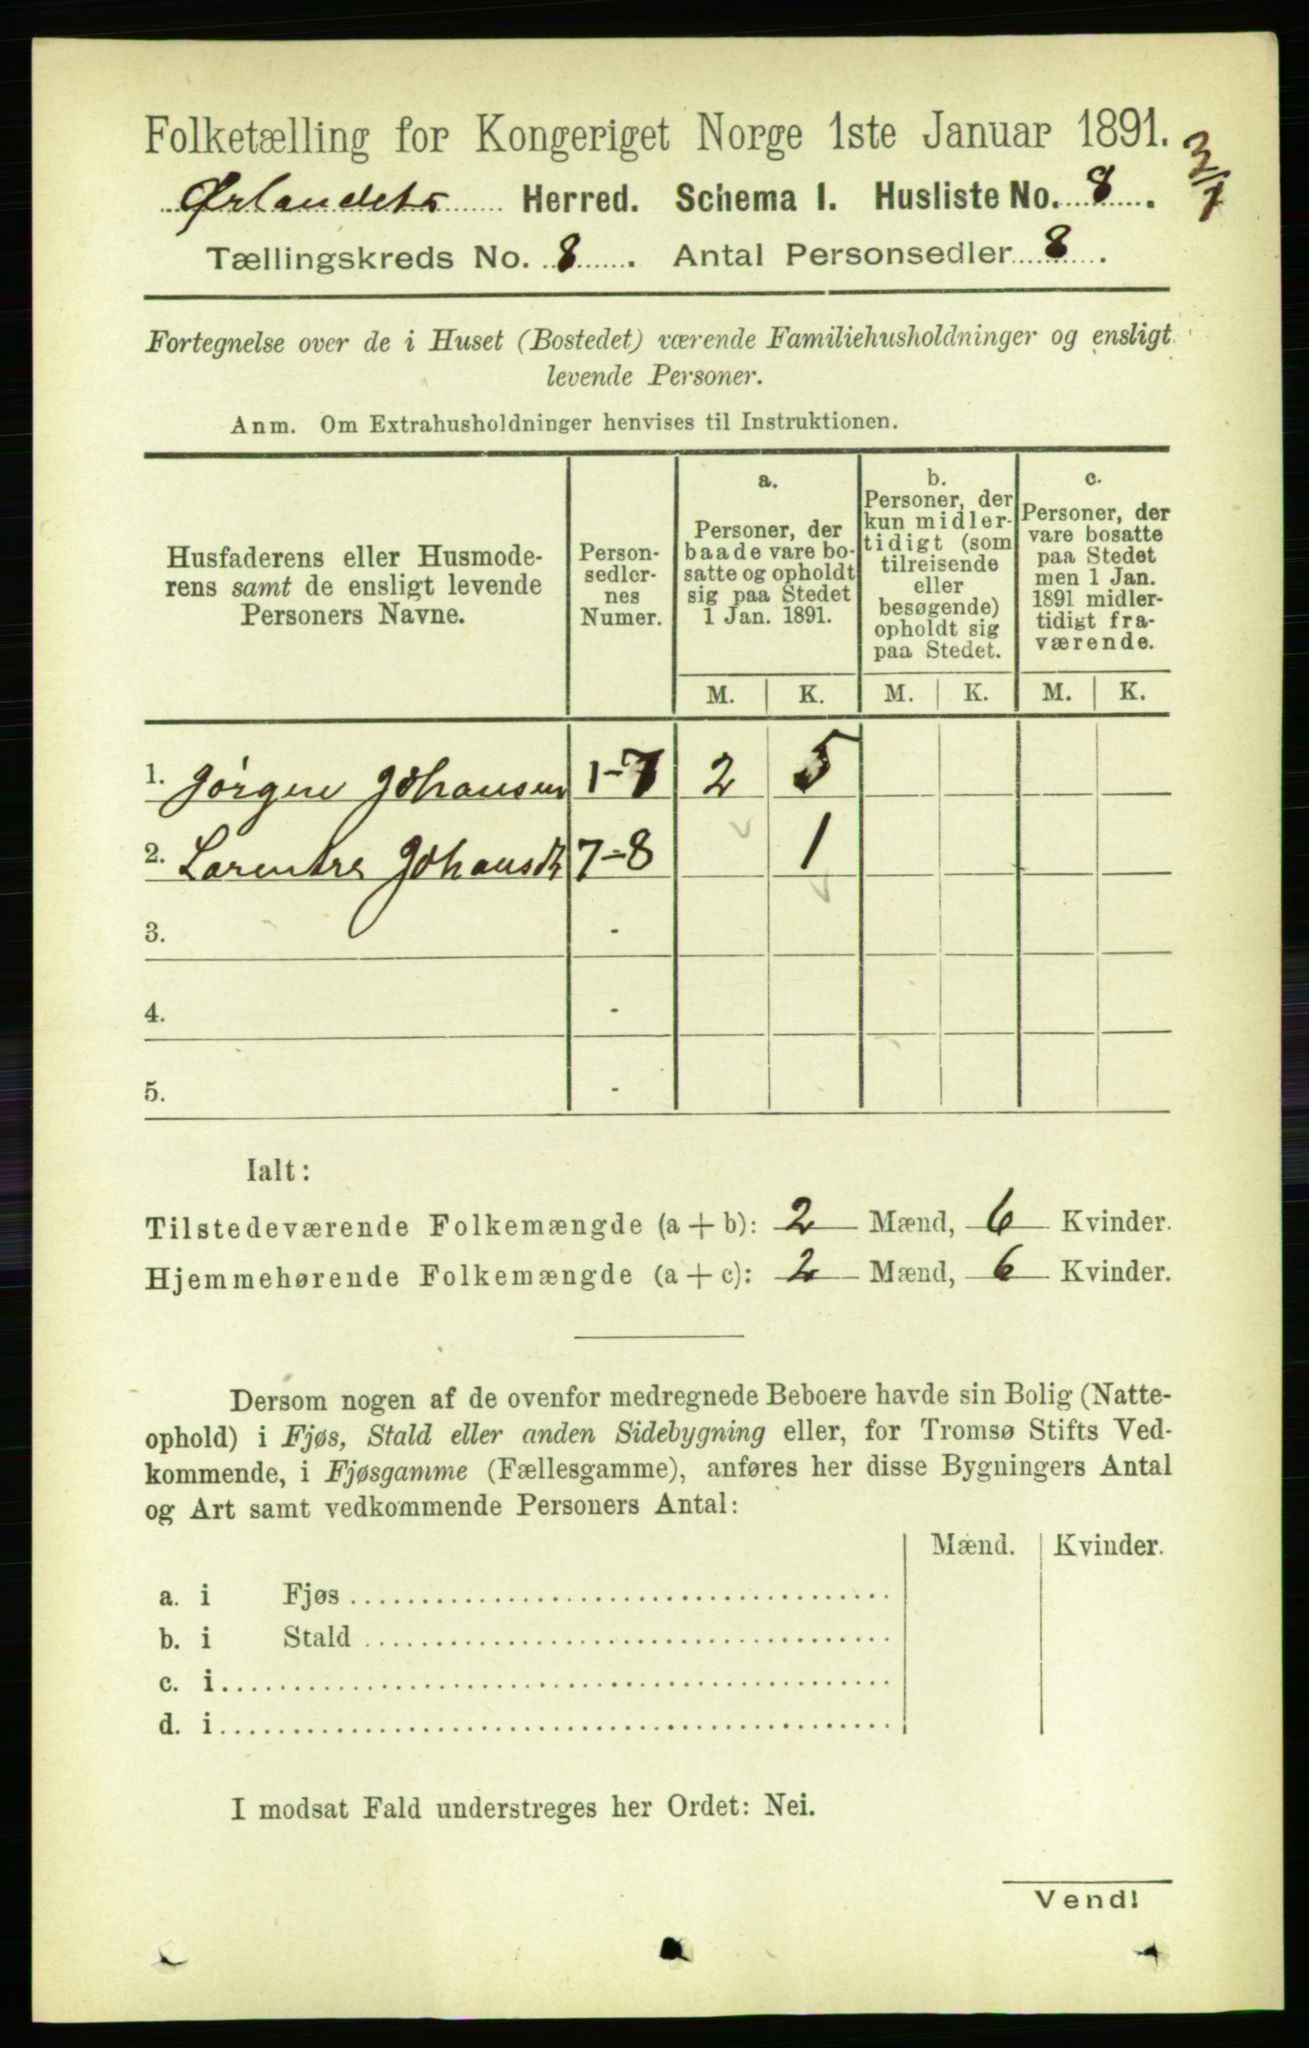 Folketælling for Kongeriget Norge 1ste Januar 1891.
3/7
Ørlandets Herred. Schema I. Husliste No. 8.
Tællingskreds No. 8. Antal Personsedler 8.
Fortegnelse over de i Huset (Bostedet) værende Familiehusholdninger og ensligt
levende Personer.
Anm. Om Extrahusholdninger henvises til Instruktionen.
Husfaderens eller Husmode-
rens samt de ensligt levende
Personers Navne.
Person-
sedler-
nes
Numer.
a.
Personer, der
baade vare bo-
satte og opholdt
sig paa Stedet
1 Jan. 1891.
b.
Personer, der
kun midler-
tidigt (som
tilreisende
eller
besøgende)
opholdt sig
paa Stedet.
c.
Personer, der
vare bosatte
paa Stedet
men 1 Jan.
1891 midler-
tidigt fra-
værende.
M. K. M. K. M. K.
1. Jørgen Johansen 1-7 2 5
2. Johansdt 7-8 1
3. -
4. -
5. -
Ialt:
Tilstedeværende Folkemængde (a + b): 2 Mænd, 6 Kvinder.
Hjemmehørende Folkemængde (a + c): 2 Mænd, 6 Kvinder.
Dersom nogen af de ovenfor medregnede Beboere havde sin Bolig (Natte-
ophold) i Fjøs, Stald eller anden Sidebygning eller, for Tromsø Stifts Ved-
kommende, i Fjøsgamme (Fællesgamme), anføres her disse Bygningers Antal
og Art samt vedkommende Personers Antal:
Mænd. Kvinder.
a. i Fjøs
b. i Stald
c. i
d. i
I modsat Fald understreges her Ordet: Nei.
Vend!